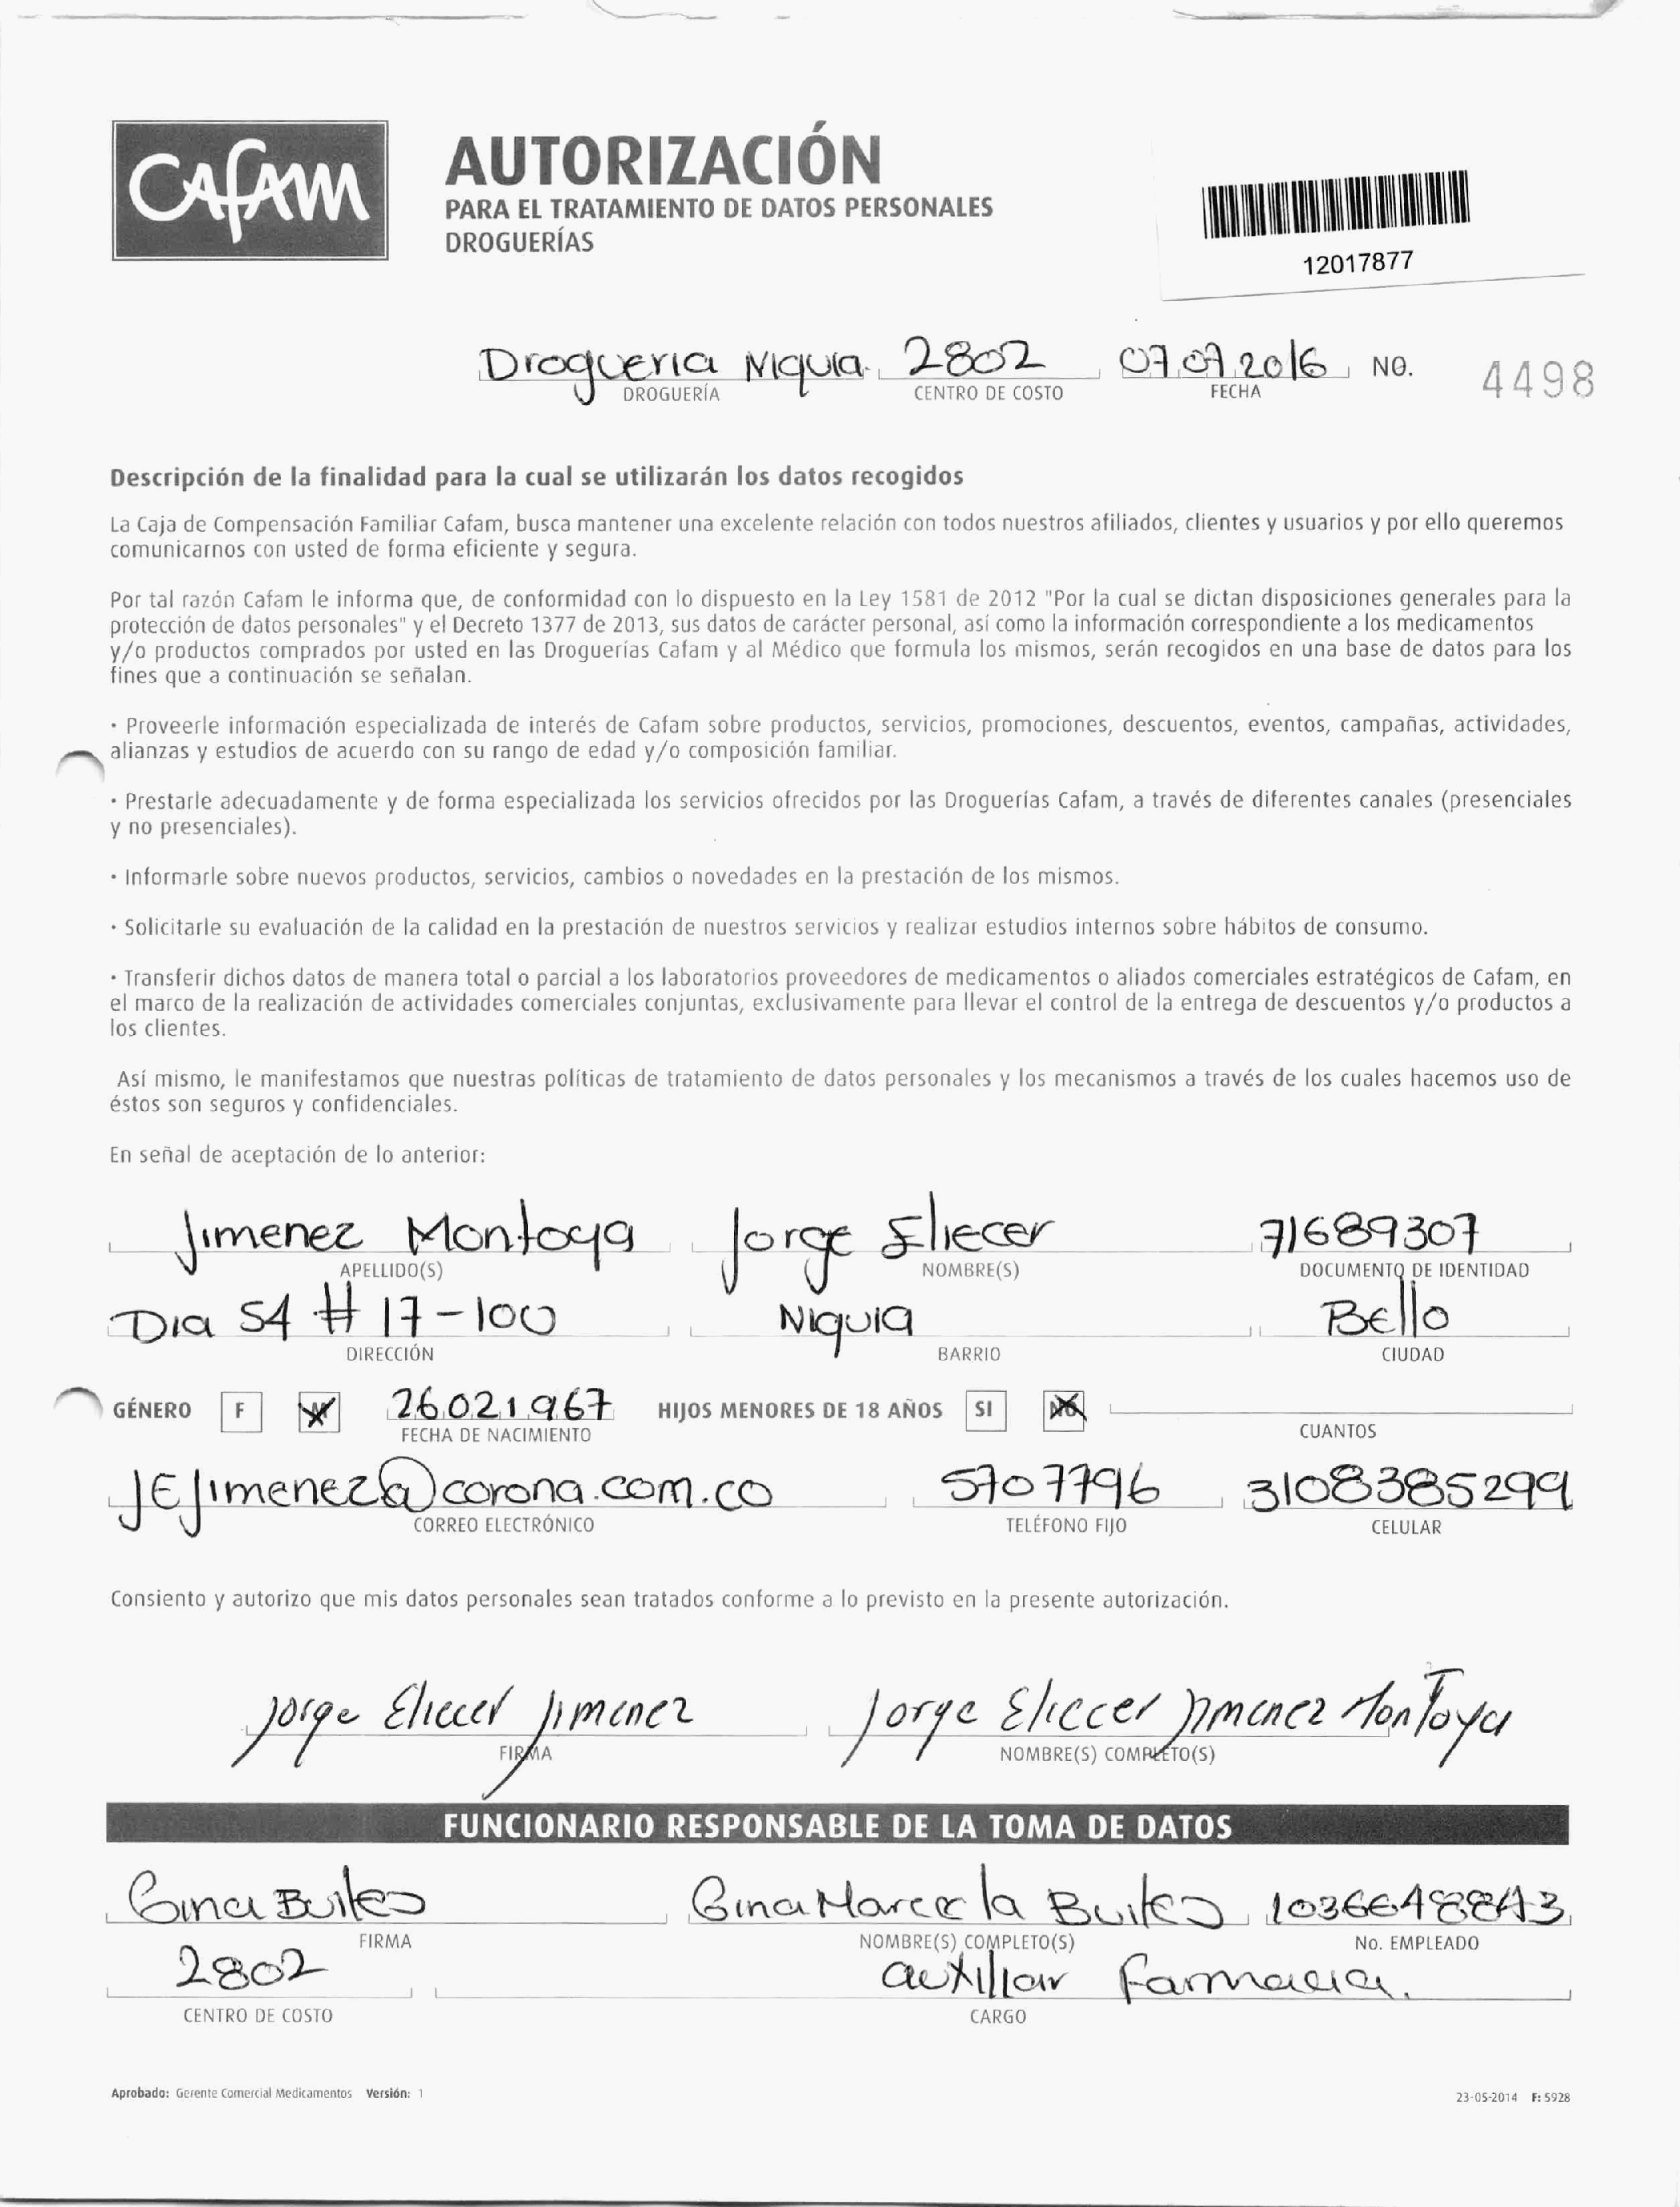 CAFAM
AUTORIZACIÓN
PARA EL TRATAMIENTO DE DATOS PERSONALES
DROGUERÍAS
12017877
Drogueria Niquia. 2802 07.07.2016 NO. 4498
DROGUERÍA CENTRO DE COSTO FECHA
Descripción de la finalidad para la cual se utilizarán los datos recogidos
La Caja de Compensación Familiar Cafam, busca mantener una excelente relación con todos nuestros afiliados, clientes y usuarios y por ello queremos
comunicarnos con usted de forma eficiente y segura.
Por tal razón Cafam le informa que, de conformidad con lo dispuesto en la Ley 1581 de 2012 "Por la cual se dictan disposiciones generales para la
protección de datos personales" y el Decreto 1377 de 2013, sus datos de carácter personal, así como la información correspondiente a los medicamentos
y/o productos comprados por usted en las Droguerías Cafam y al Médico que formula los mismos, serán recogidos en una base de datos para los
fines que a continuación se señalan.
· Proveerle información especializada de interés de Cafam sobre productos, servicios, promociones, descuentos, eventos, campañas, actividades,
alianzas y estudios de acuerdo con su rango de edad y/o composición familiar.
· Prestarle adecuadamente y de forma especializada los servicios ofrecidos por las Droguerías Cafam, a través de diferentes canales (presenciales
y no presenciales).
· Informarle sobre nuevos productos, servicios, cambios o novedades en la prestación de los mismos.
· Solicitarle su evaluación de la calidad en la prestación de nuestros servicios y realizar estudios internos sobre hábitos de consumo.
· Transferir dichos datos de manera total o parcial a los laboratorios proveedores de medicamentos o aliados comerciales estratégicos de Cafam, en
el marco de la realización de actividades comerciales conjuntas, exclusivamente para llevar el control de la entrega de descuentos y/o productos a
los clientes.
Así mismo, le manifestamos que nuestras políticas de tratamiento de datos personales y los mecanismos a través de los cuales hacemos uso de
éstos son seguros y confidenciales.
En señal de aceptación de lo anterior:
Jimenez Montoya Jorge Eliecer 71689307
APELLIDO(S) NOMBRE(S) DOCUMENTO DE IDENTIDAD
Dia 54 # 17-100 Niquia Bello
DIRECCIÓN BARRIO CIUDAD
GÉNERO F M 26021967 HIJOS MENORES DE 18 AÑOS SI NO
FECHA DE NACIMIENTO CUANTOS
JEJimenez@corona.com.co 5707796 3108385299
CORREO ELECTRÓNICO TELÉFONO FIJO CELULAR
Consiento y autorizo que mis datos personales sean tratados conforme a lo previsto en la presente autorización.
Jorge Eliecer Jimenez Jorge Eliecer Jimenez Montoya
FIRMA NOMBRE(S) COMPLETO(S)
FUNCIONARIO RESPONSABLE DE LA TOMA DE DATOS
Gina Builes Gina Marcela Builes 1036648843
FIRMA NOMBRE(S) COMPLETO(S) No. EMPLEADO
2802 auxiliar Farmacia.
CENTRO DE COSTO CARGO
Aprobado: Gerente Comercial Medicamentos Versión: 1
23-05-2014 F: 5928